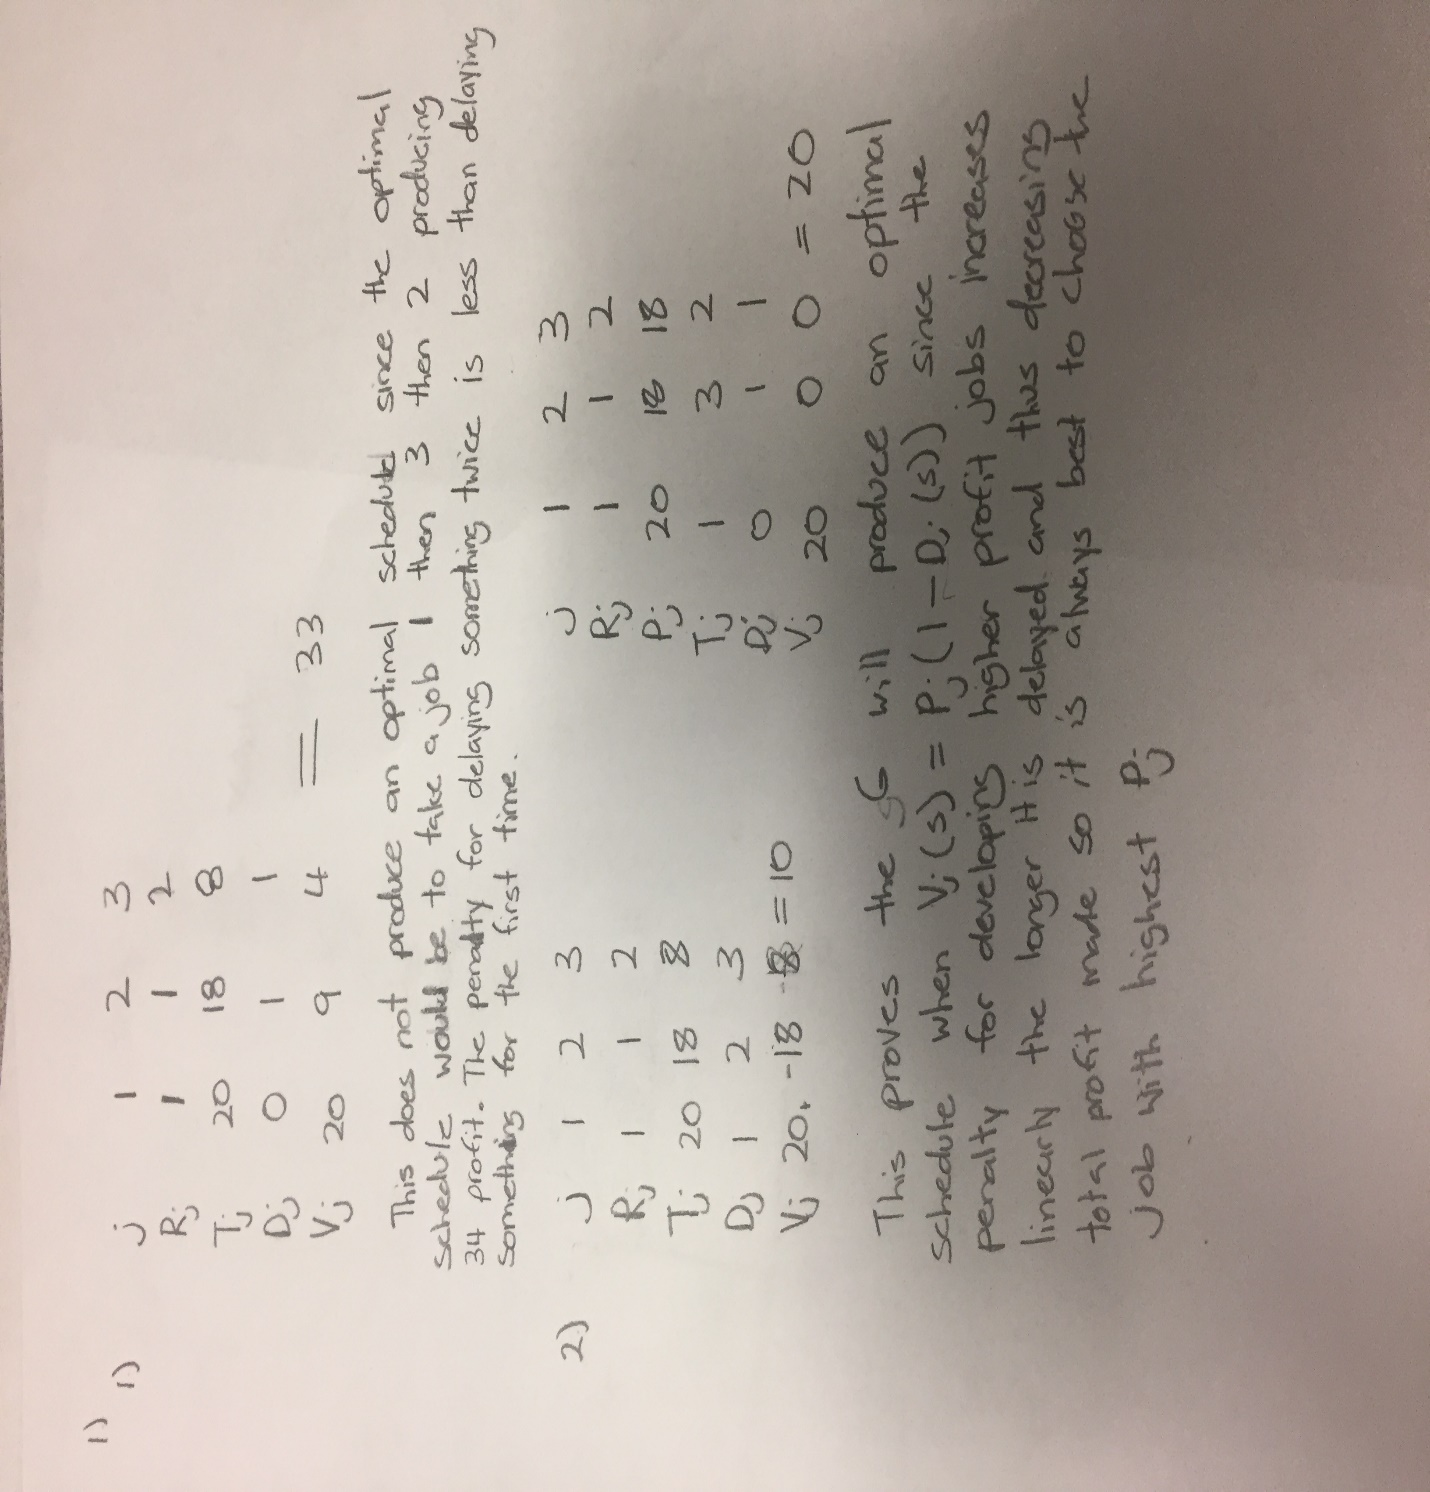 1) 1)
j 1 2 3
Rj 1 1 2
Tj 20 18 8
Dj 0 1 1
Vj 20 9 4 = 33
This does not produce an optimal schedule since the optimal
schedule would be to take a job 1 then 3 then 2 producing
34 profit. The penalty for delaying something twice is less than delaying
something for the first time.
2) j 1 2 3 j 1 2 3
Rj 1 1 2 Rj 1 1 2
Tj 20 18 8 Pj 20 18 18
Dj 1 2 3 Tj 1 3 2
Vj 20, -18 -8 = 10 Dj 0 1 1
Vj 20 0 0 = 20
This proves the sG will produce an optimal
schedule when Vj(s) = Pj(1-Dj(s)) since the
penalty for developing higher profit jobs increases
linearly the longer it is delayed and thus decreasing
total profit made so it is always best to choose the
job with highest Pj